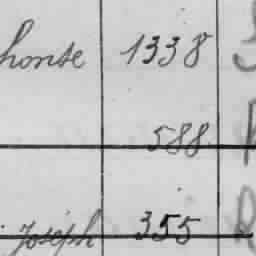 honse 1338
588
Joseph 355